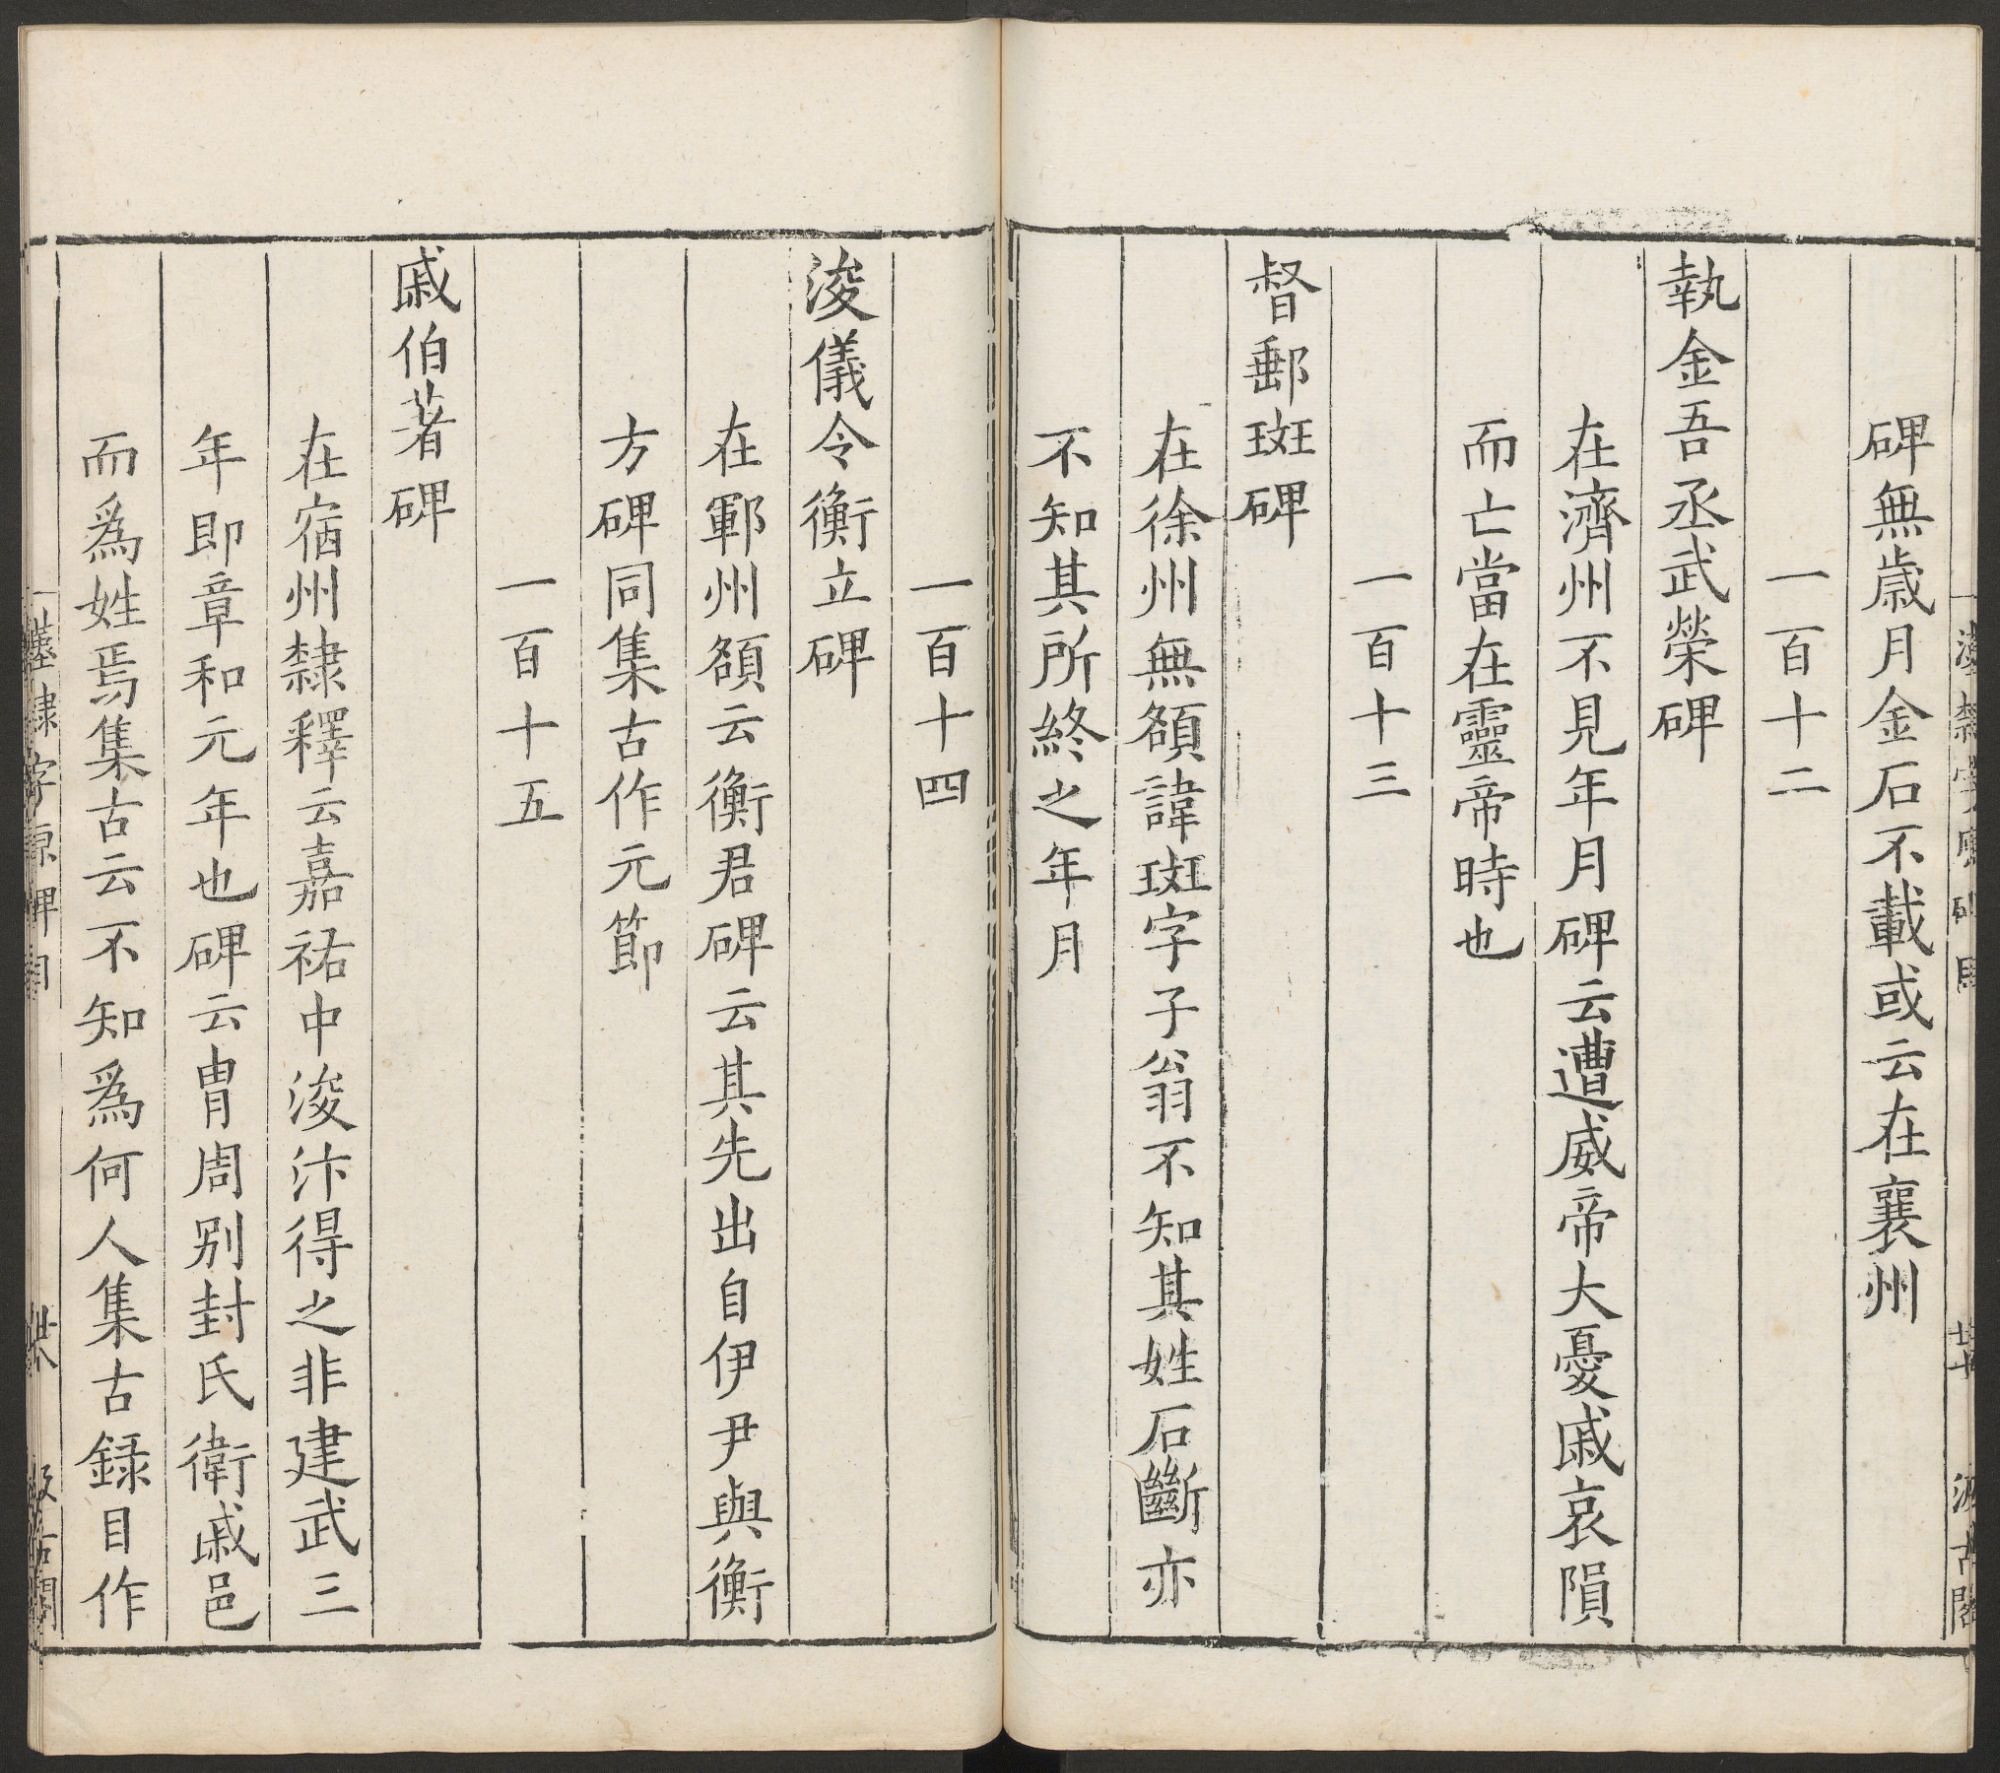 碑無歲月金石不載或云在襄州
一百十二
執金吾丞武榮碑
在濟州不見年月碑云遭威帝大憂戚哀隕
而亡當在靈帝時也
一百十三
督郵斑碑
在徐州無額諱斑字子翁不知其姓石斷亦
不知其所終之年月
一百十四
浚儀令衡立碑
在鄆州額云衡君碑云其先出自伊尹與衡
方碑同集古作元節
一百十五
戚伯著碑
在宿州隸釋云嘉祐中浚汴得之非建武三
年即章和元年也碑云胄周别封氏衛戚邑
而為姓焉集古云不知為何人集古録目作